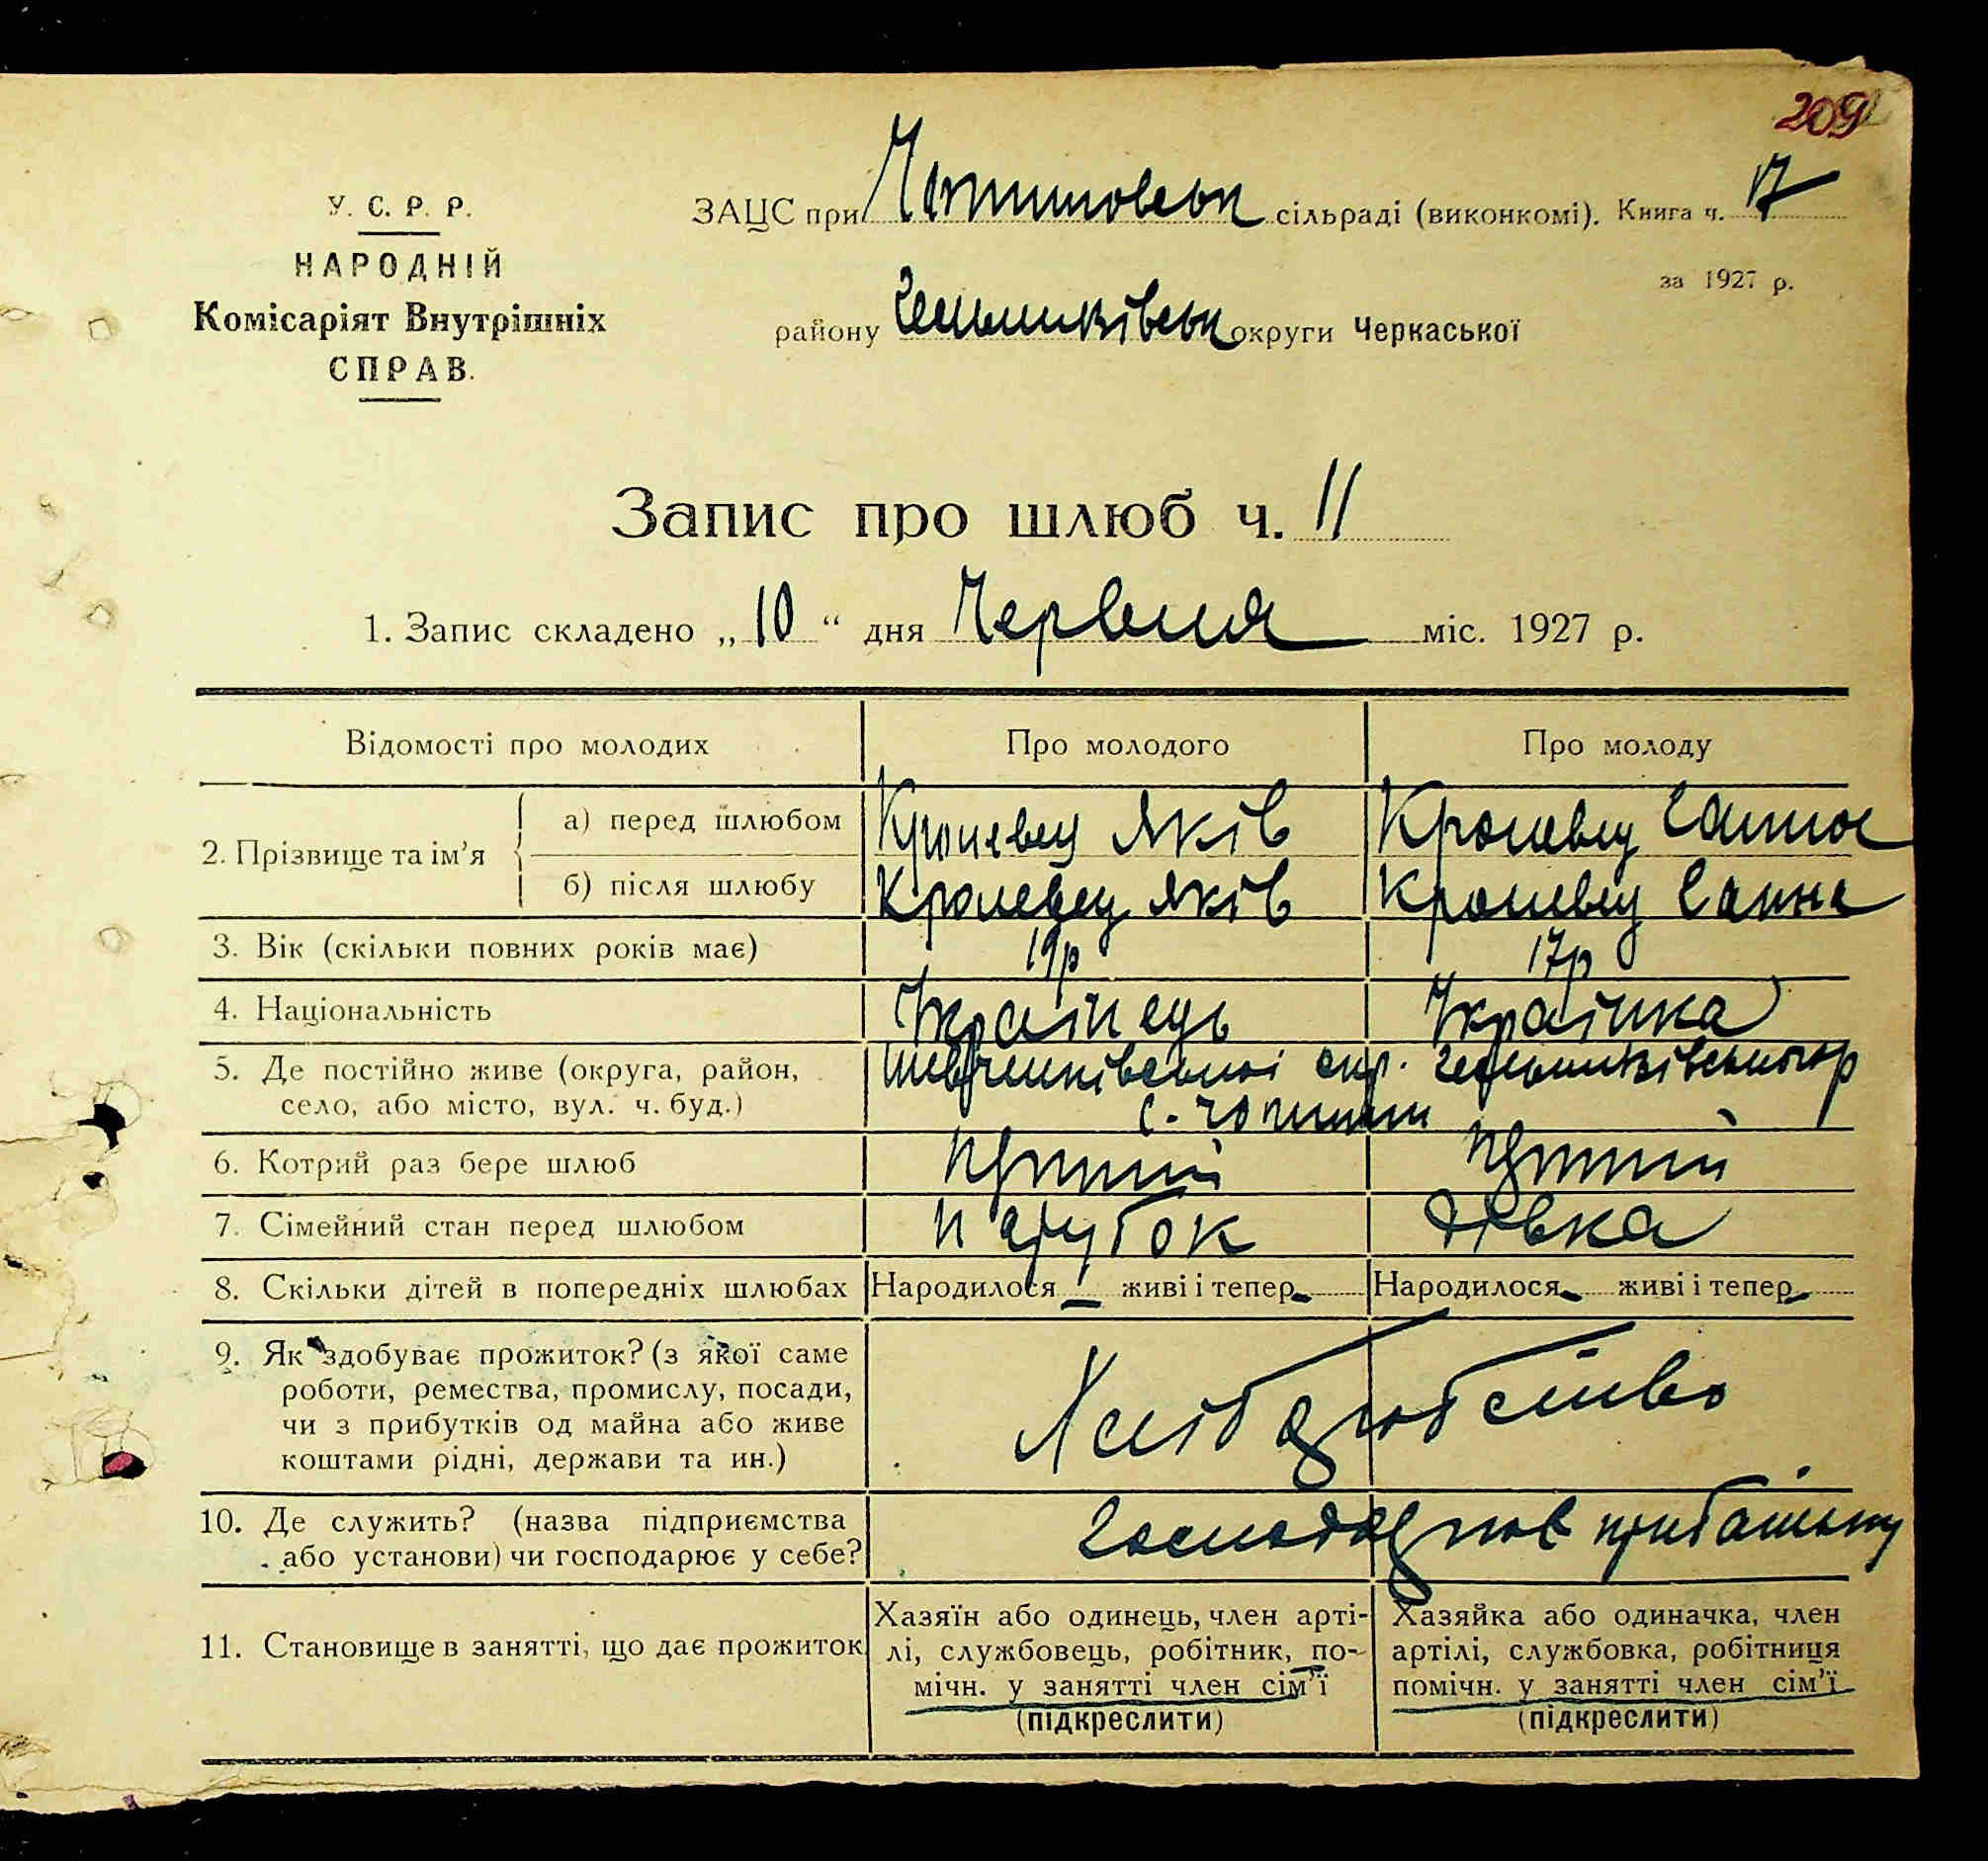 209
У. С. Р. Р.
НАРОДНІЙ
Комісаріят Внутрішніх
СПРАВ.
ЗАЦС при сільраді (виконкомі). Книга ч. 17
за 1927 р.
району округи Черкаської
Запис про шлюб ч. 11
1. Запис складено „10“ дня Червня міс. 1927 р.
Відомості про молодих Про молодого Про молоду
2. Прізвище та ім'я
а) перед шлюбом Кролевец Яків Кролевец Ганна
б) після шлюбу Кролевец Яків Кролевец Ганна
3. Вік (скільки повних років має) 19р 17р
4. Національність Українець Українка
5. Де постійно живе (округа, район, Шевченківської окр.
село, або місто, вул. ч. буд.) с.
6. Котрий раз бере шлюб Перший Перший
7. Сімейний стан перед шлюбом парубок дівка
8. Скільки дітей в попередніх шлюбах Народилося – живі і тепер – Народилося – живі і тепер –
9. Як здобуває прожиток? (з якої саме
роботи, ремества, промислу, посади,
чи з прибутків од майна або живе
коштами рідні, держави та ин.)
Хліборобство
10. Де служить? (назва підприємства
або установи) чи господарює у себе?
Господарює при батьку
11. Становище в занятті, що дає прожиток
Хазяїн або одинець, член арті-
лі, службовець, робітник, по-
мічн. у занятті член сім'ї
(підкреслити)
Хазяйка або одиначка, член
артілі, службовка, робітниця
помічн. у занятті член сім'ї
(підкреслити)